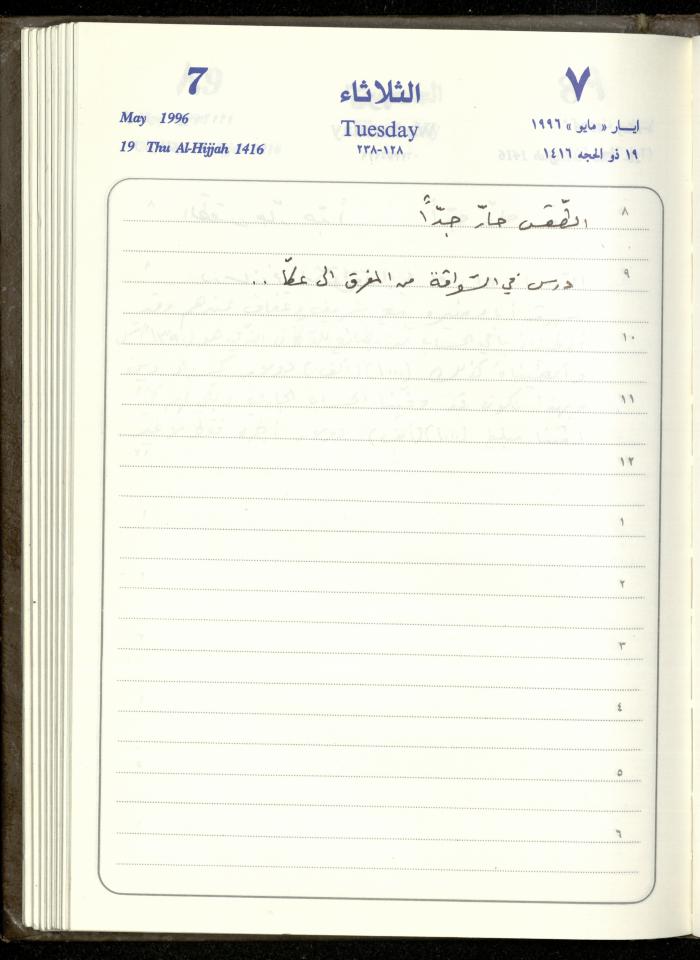 7 الثلاثاء ٧
May 1996 Tuesday ايـار « مايو » ١٩٩٦
19 Thu Al-Hijjah 1416 ١٢٨-٢٣٨ ١٩ ذو الحجه ١٤١٦
٨ الطّقس حارّ جدّاً
٩ درس في السّواقة من المفرق الى عكّا ..
١٠
١١
١٢
١
٢
٣
٤
٥
٦